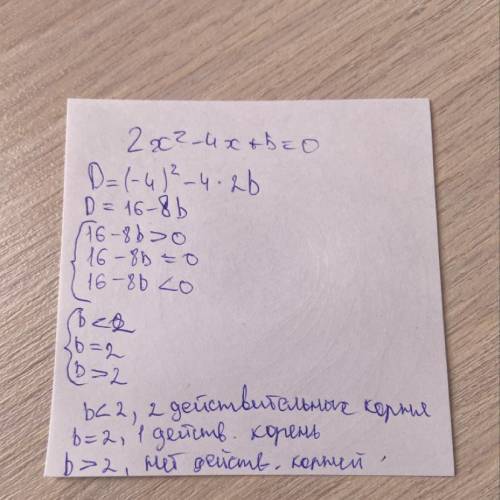 2x²-4x+b=0
D=(-4)²-4·2b
D=16-8b
16-8b>0
16-8b=0
16-8b<0
b<2
b=2
b>2
b<2, 2 действительные корня
b=2, 1 действ. корень
b>2, нет действ. корней